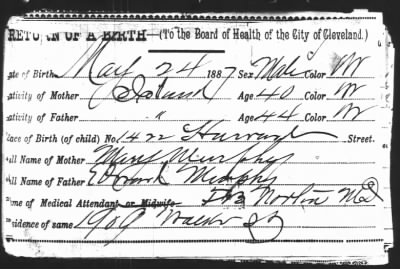 RETURN OF A BIRTH—(To the Board of Health of the City of Cleveland.)
ate of Birth 24 1887 Sex Male Color W
ativity of Mother Ireland Age 40 Color W
ativity of Father " Age 44 Color W
lace of Birth (of child) No. 1422 Street.
ull Name of Mother Murphy
ull Name of Father Edward Murphy
ame of Medical Attendant or Midwife Norton MD
sidence of same 1909